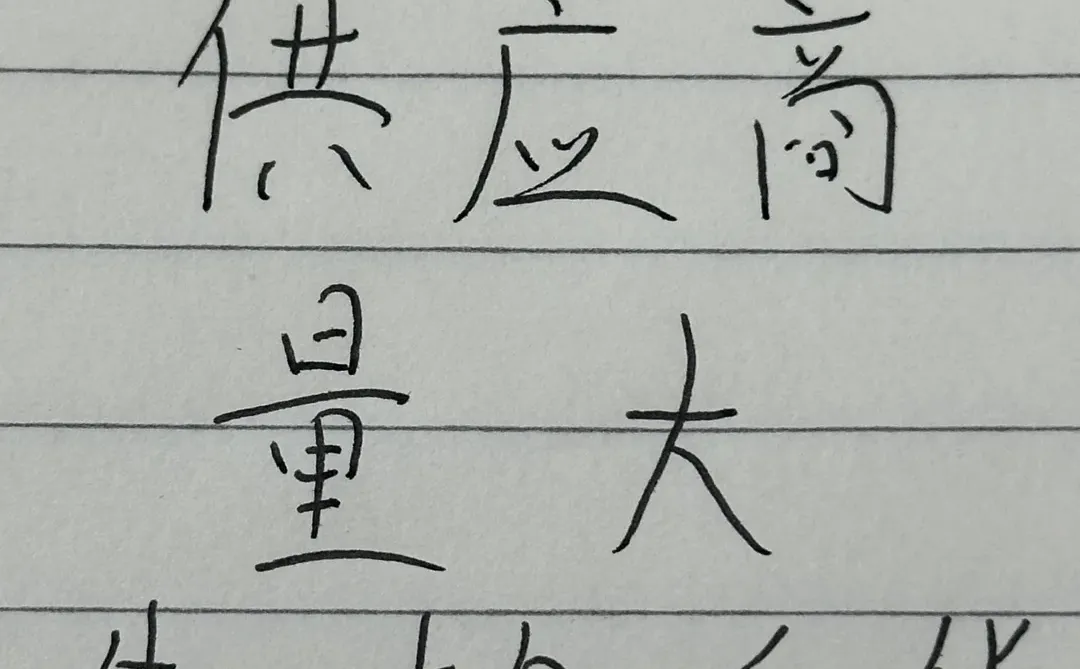 供应商
量大